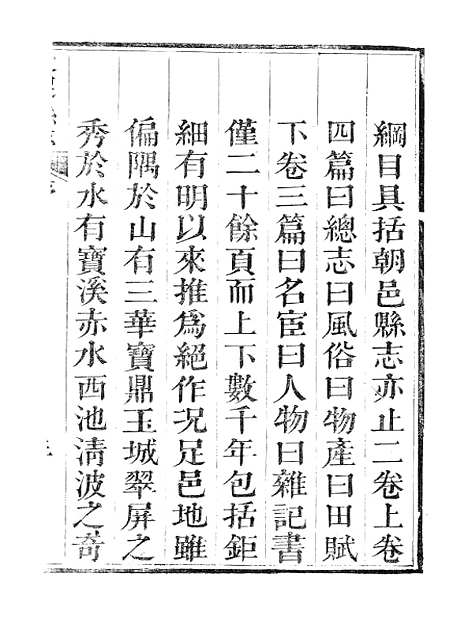 綱目具括朝邑縣志亦止二卷上卷
四篇曰總志曰風俗曰物產曰田賦
下卷三篇曰名宦曰人物曰雜記書
僅二十餘頁而上下數千年包括鉅
細有明以來推為絕作况足邑地雖
偏隅於山有三華寶鼎玉城翠屏之
秀於水有寶溪赤水西池清波之奇